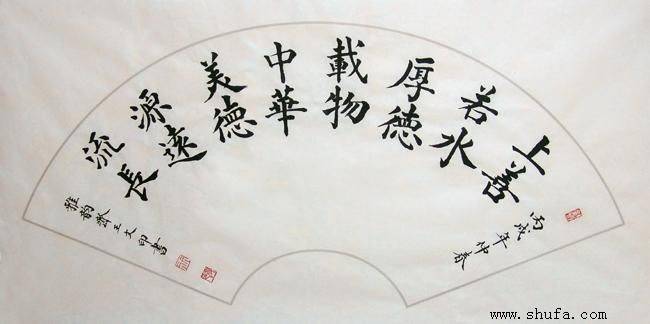 上善
若水
厚德
載物
中華
美德
源遠
流長
丙戌年仲春
雅韵齋王文印書
www.shufa.com